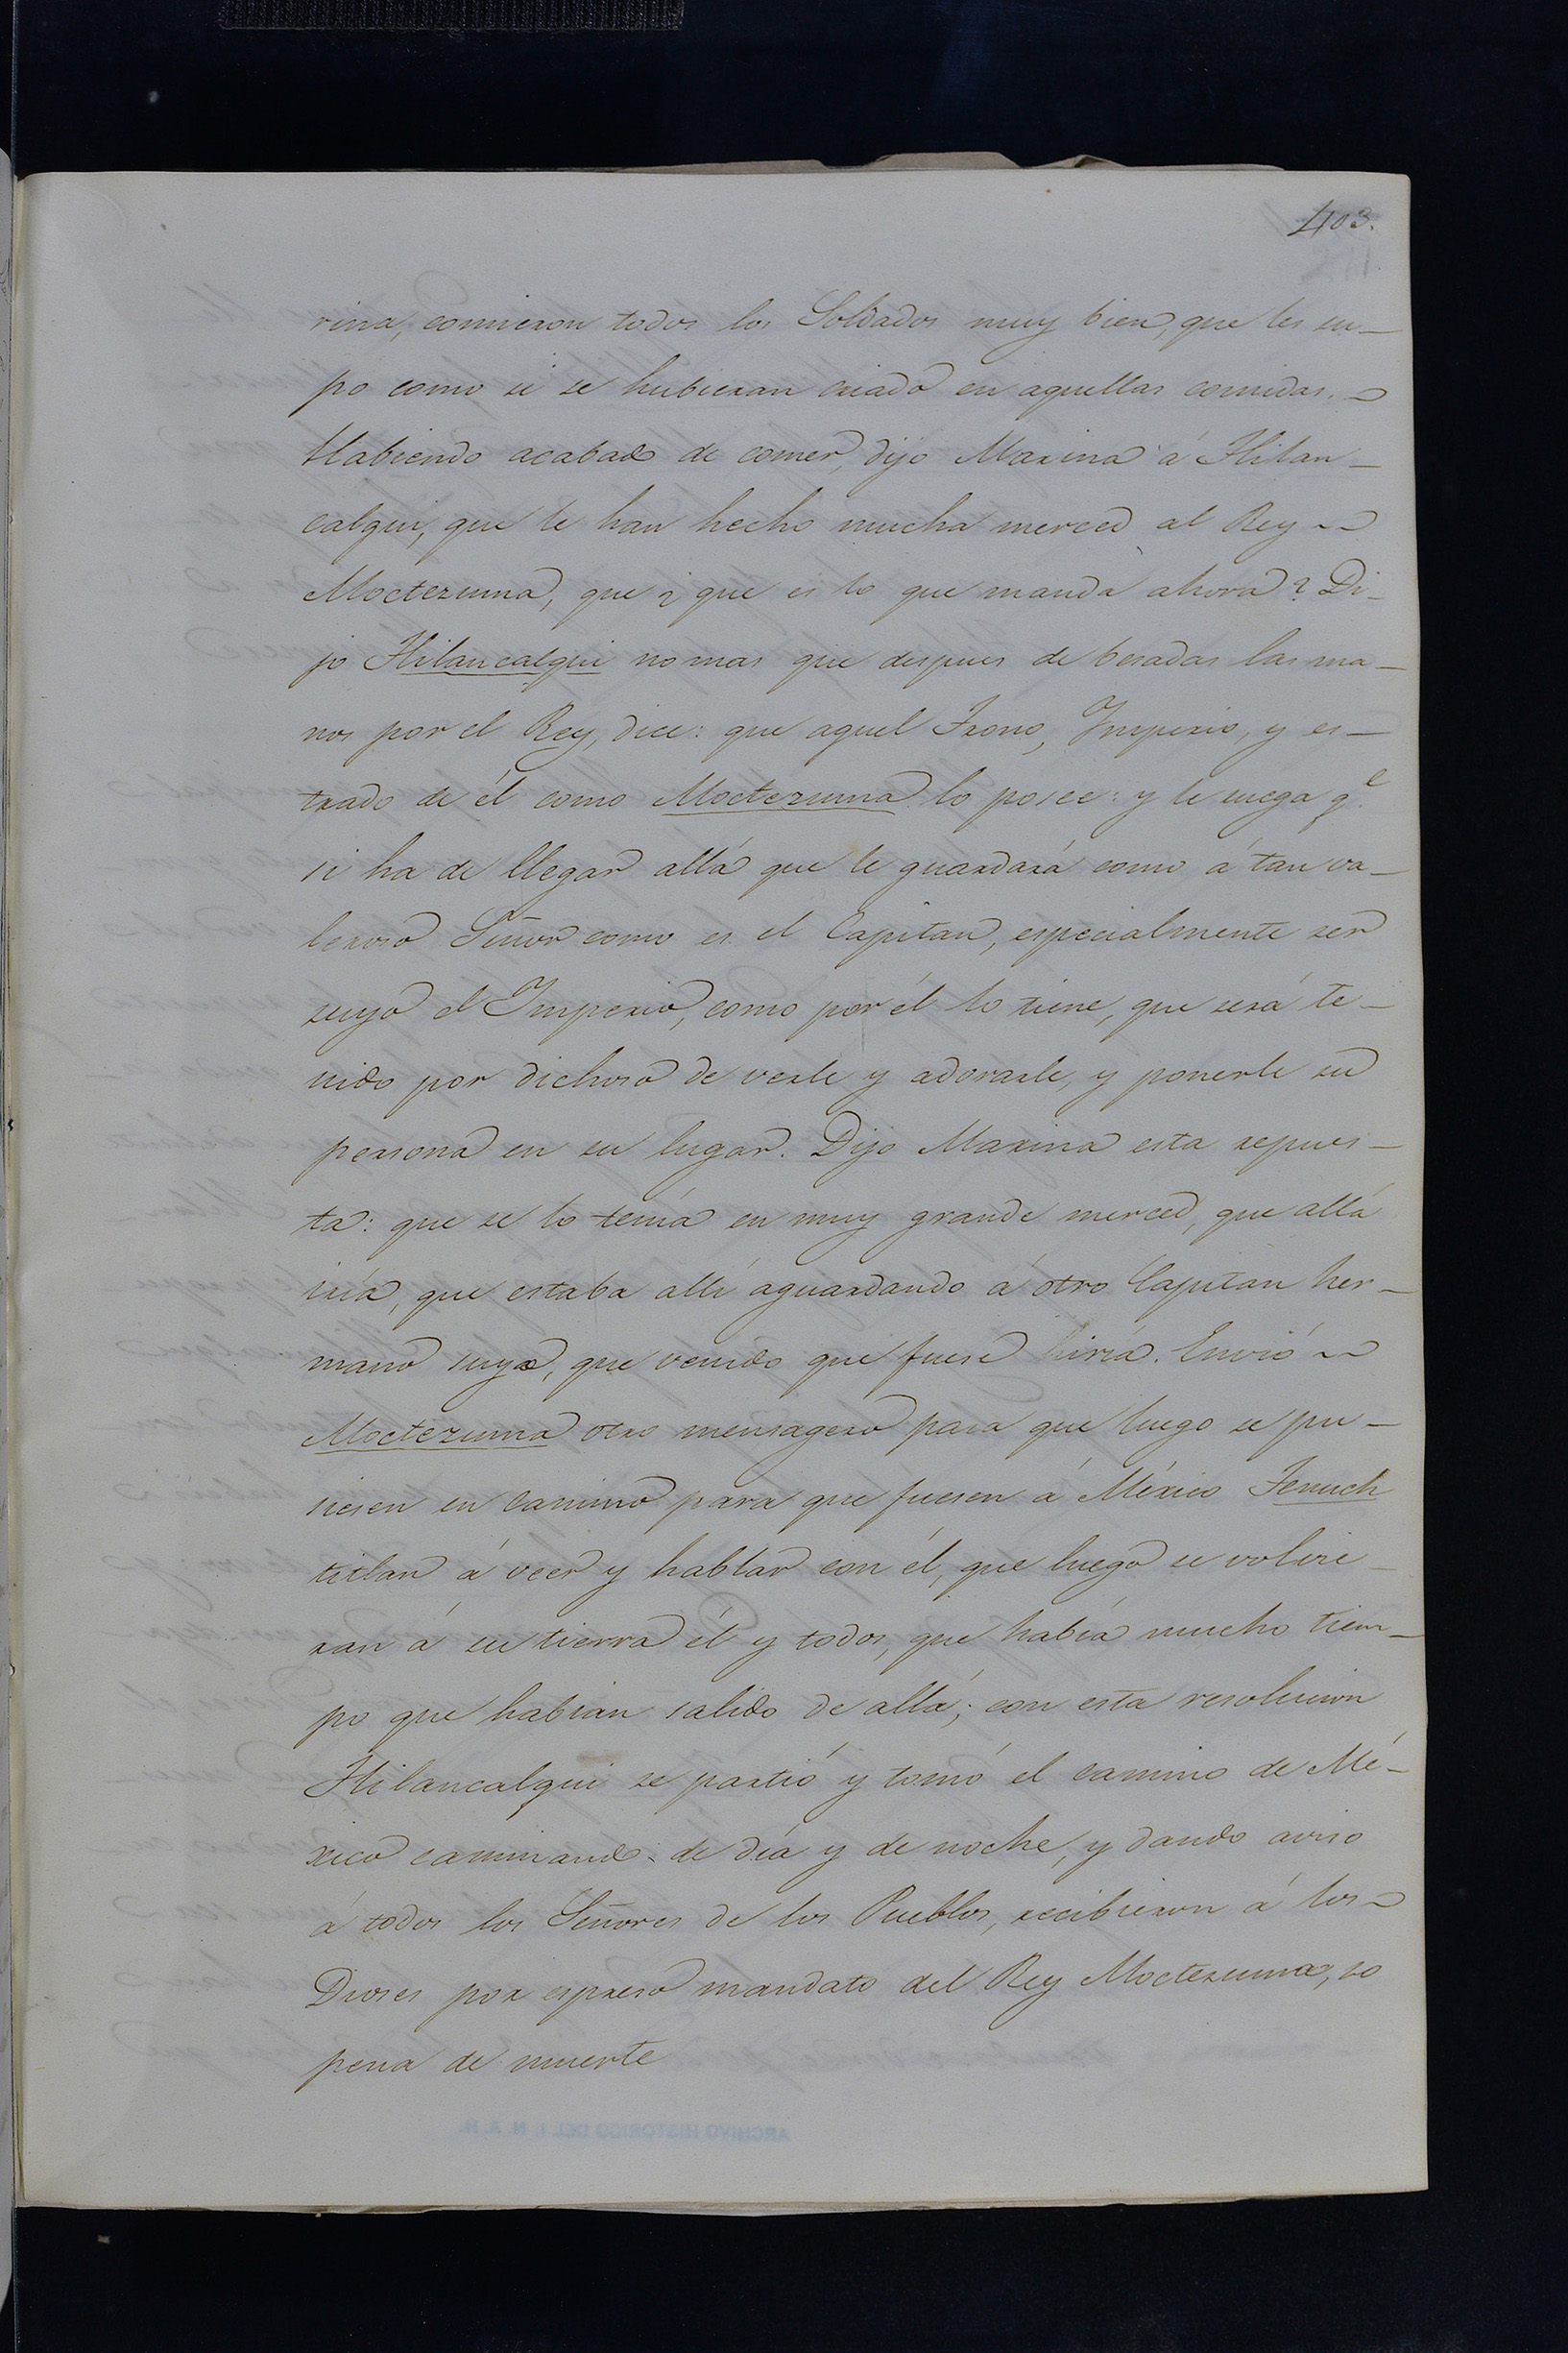 403.
rina, comieron todos los Soldados muy bien, que les su-
po como si se hubieran criado en aquellas comidas.
Habiendo acabado de comer, dijo Marina á Hilan-
calqui, que le han hecho mucha merced al Rey
Moctezuma, que ¿que es lo que manda ahora? Di-
jo Hilancalqui no mas que despues de besadas las ma-
nos por el Rey, dice: que aquel Trono, Imperio, y es-
trado de él como Moctezuma lo posee: y le ruega q.e
si ha de llegar allá que le guardará como á tan va-
leroso Señor como es el Capitan, especialmente ser
suyo el Imperio, como por él lo tiene, que será te-
nido por dichoso de verle y adorarle, y ponerle su
persona en su lugar. Dijo Marina esta repues-
ta: que se lo tenía en muy grande merced, que allá
iría, que estaba allí aguardando á otro Capitan her-
mano suyo, que venido que fuese hiría. Envió
Moctezuma otro mensagero para que luego se pu-
siesen en camino para que fuesen á México Tenuch
titlan á veer y hablar con él, que luego se volvie-
ran á su tierra él y todos, que había mucho tiem-
po que habian salido de allá; con esta resolucion
Hilancalqui se partió y tomó el camino de Mé-
xico caminando de día y de noche, y dando aviso
á todos los Señores de los Pueblos, recibieron á los
Dioses por espreso mandato del Rey Moctezuma, so
pena de muerte
ARCHIVO HISTORICO DEL I. N. A. H.